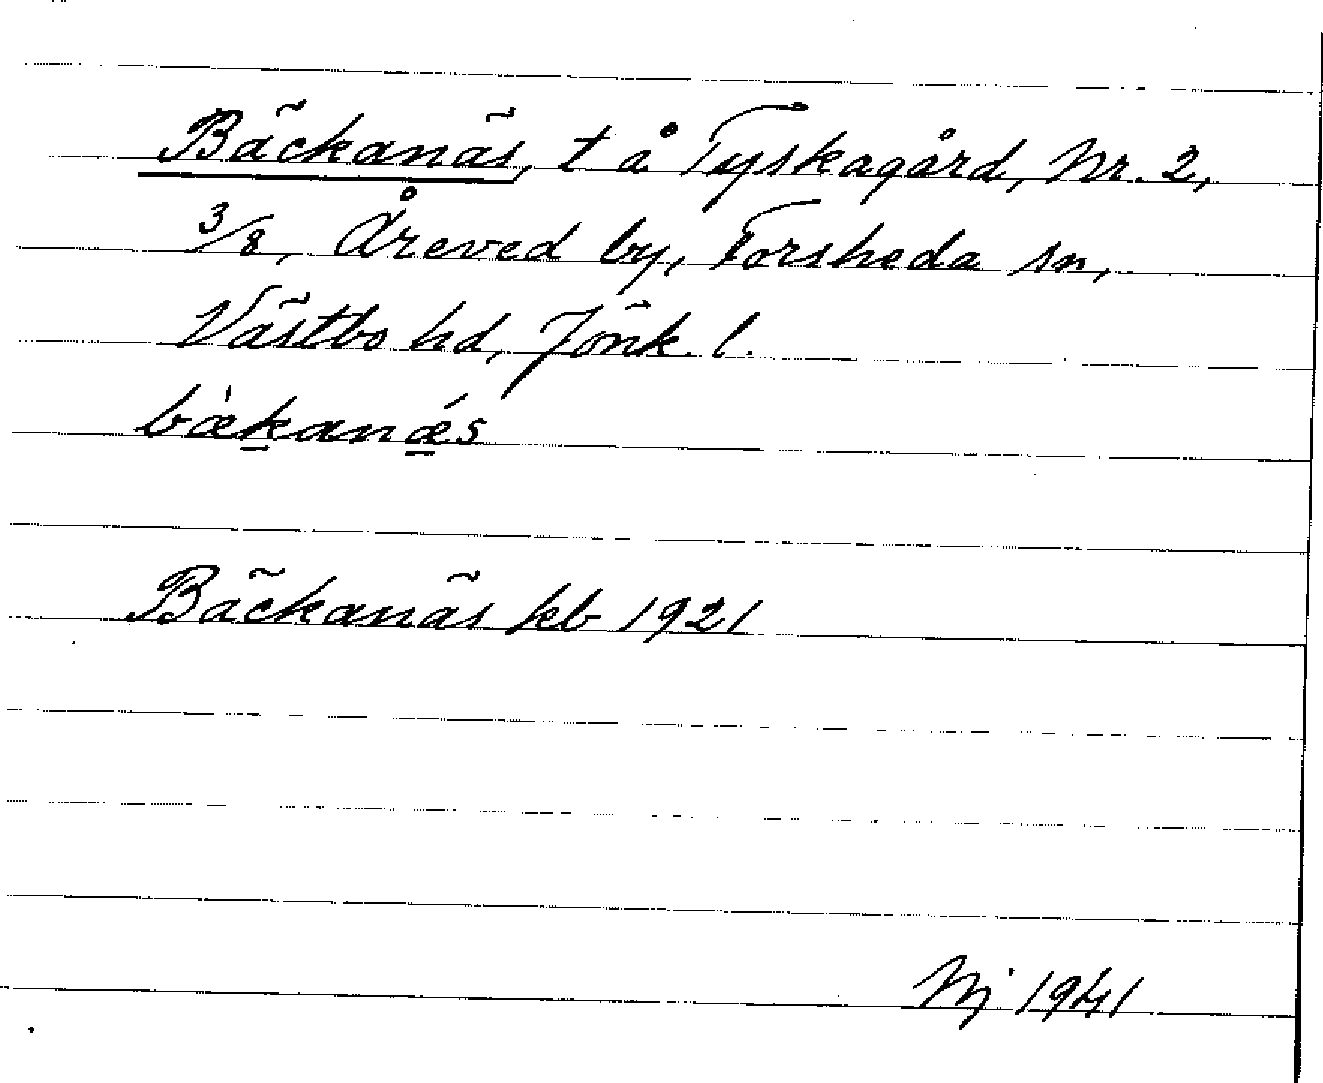 Bäckanäs, t å Tyskagård, Nr. 2,
3/8, Åreved by, Forsheda sn,
Västbo hd, Jönk. l.
bæ̀kanǽs
Bäckanäs kb 1921
Nj 1941